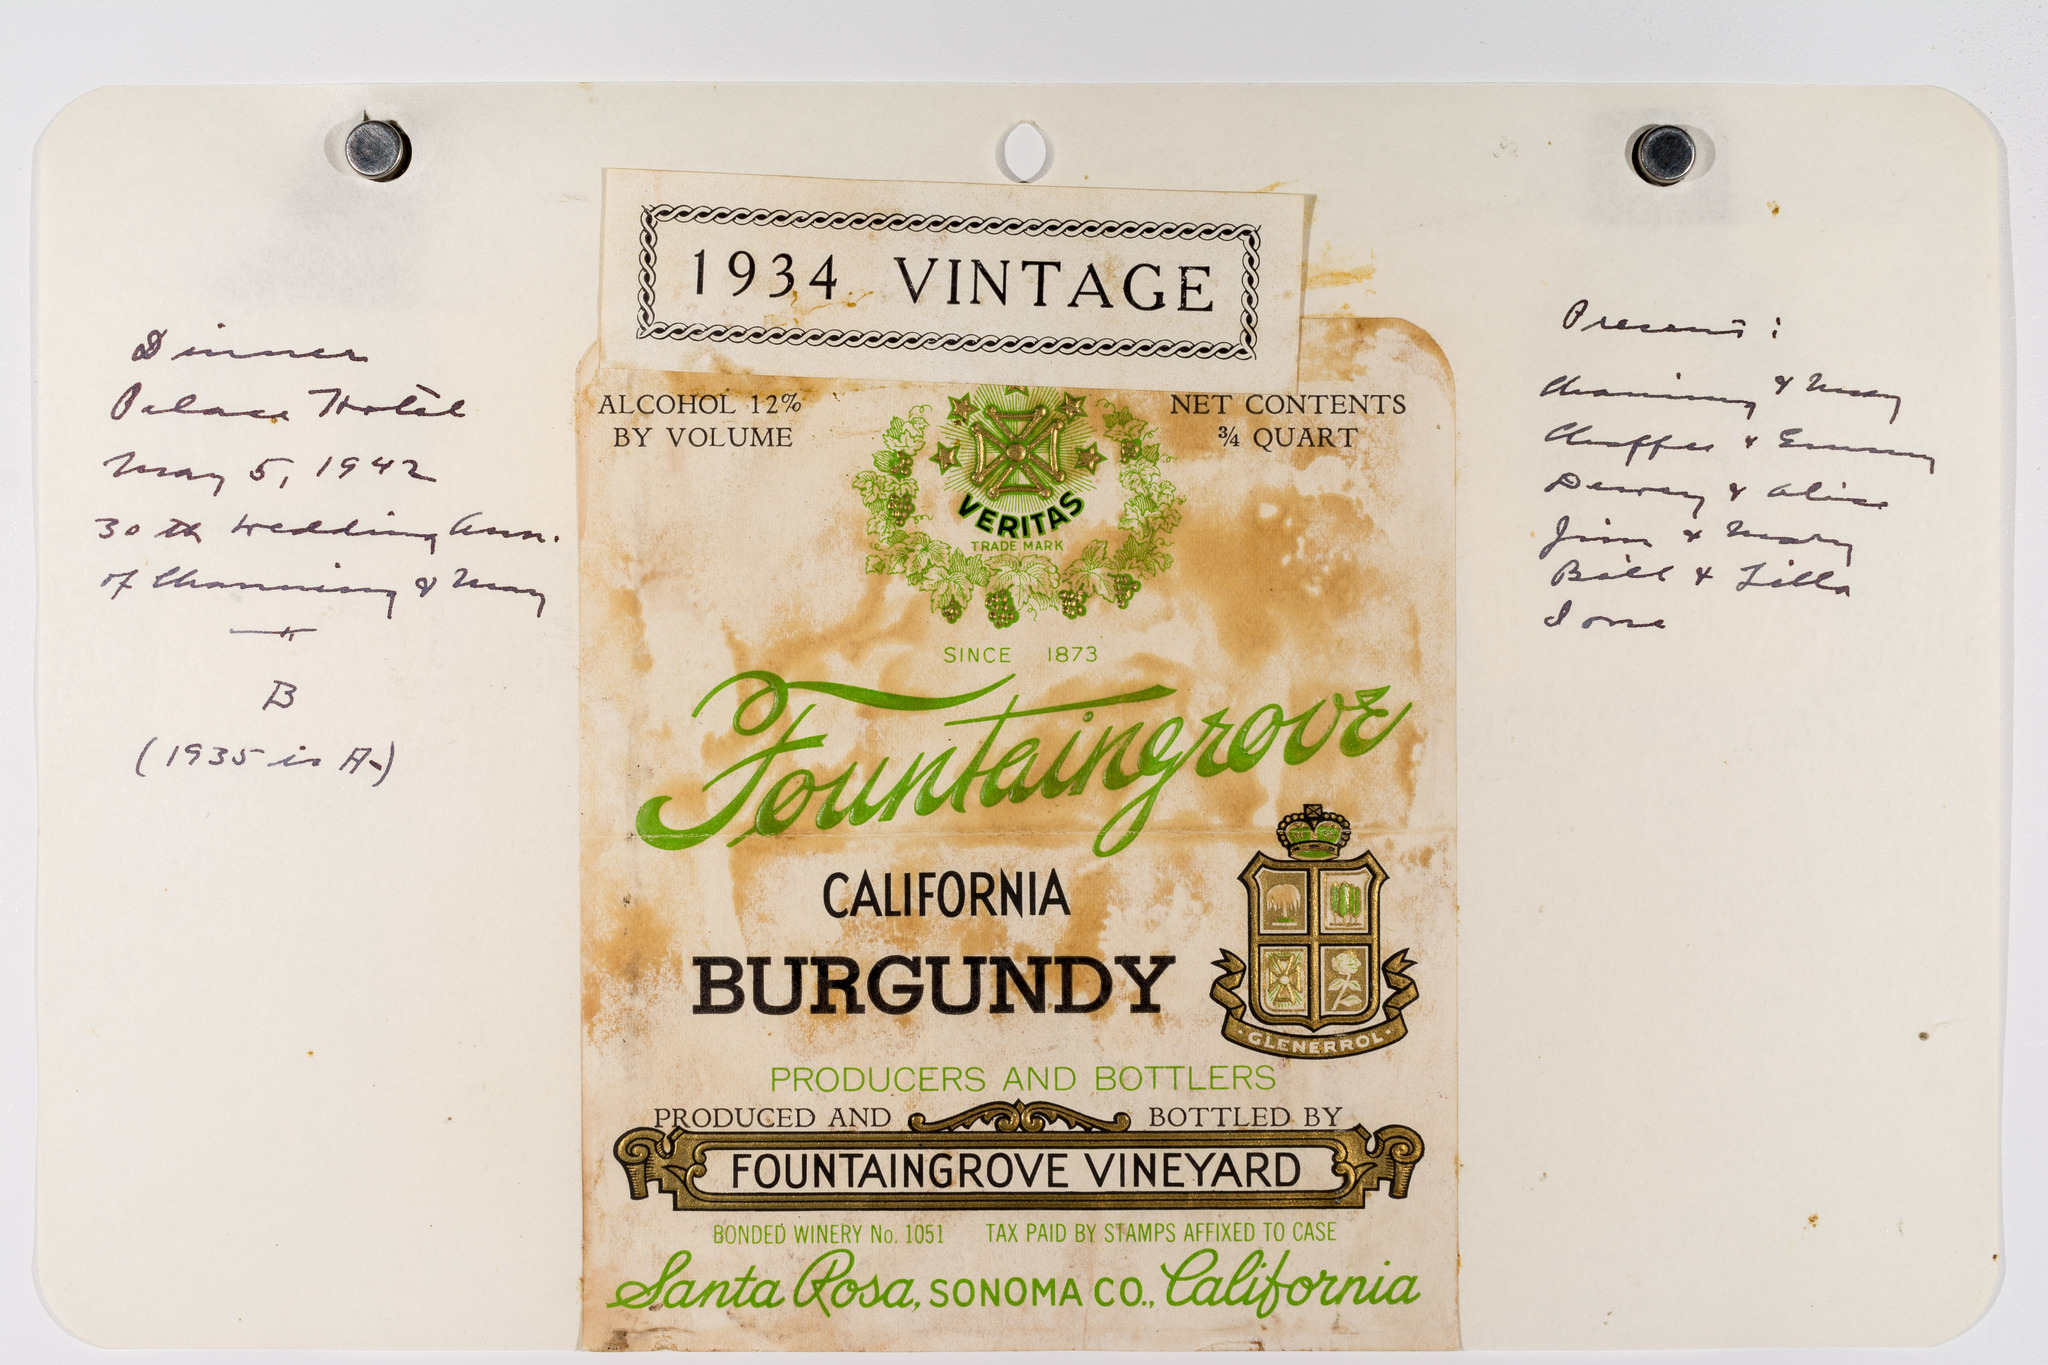 Dinner
Palace Hotel
May 5, 1942
30th Wedding Ann.
of Channing & May
B
(1935 is A-)
1934 VINTAGE
ALCOHOL 12%
BY VOLUME
NET CONTENTS
¾ QUART
VERITAS
TRADE MARK
SINCE 1873
Fountaingrove
CALIFORNIA
BURGUNDY
GLENERROL
PRODUCERS AND BOTTLERS
PRODUCED AND BOTTLED BY
FOUNTAINGROVE VINEYARD
BONDED WINERY No. 1051 TAX PAID BY STAMPS AFFIXED TO CASE
Santa Rosa, SONOMA CO., California
Present:
Channing & May
& Emmy
Dewey & Alice
Jim & Mary
Bill & Lilla
Ione